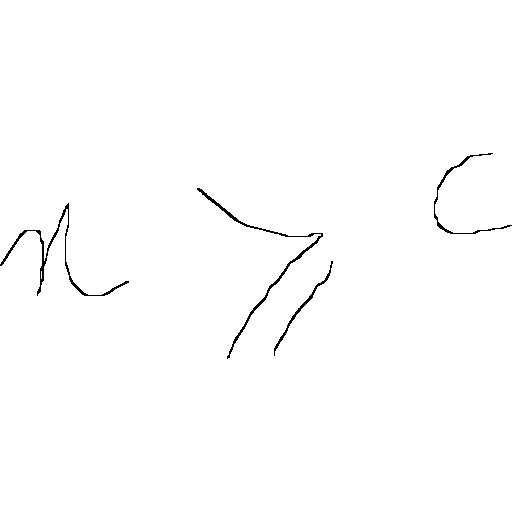 n ⩾ c